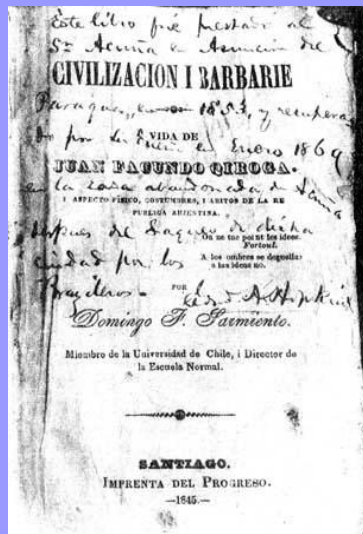 Este libro fué prestado al
Sr. Acuña en Asuncion del
CIVILIZACION I BARBARIE
Paraguay, en 1853, y recupera
do por su en Enero 1869
VIDA DE
JUAN FACUNDO QIROGA.
en la casa abandonada de Acuña
I ASPECTO FISICO, COSTUMBRES, I ABITOS DE LA RE
PUBLICA ARJENTINA.
despues del Saqueo de dicha
On ne tue point les idees.
Fortoul.
ciudad por los
A los ombres se deguella:
a las ideas no.
Brasileros.
POR
Edwd A. Hopkins
Domingo F. Sarmiento.
Miembro de la Universidad de Chile, i Director de
la Escuela Normal.
SANTIAGO.
IMPRENTA DEL PROGRESO.
—1845.—